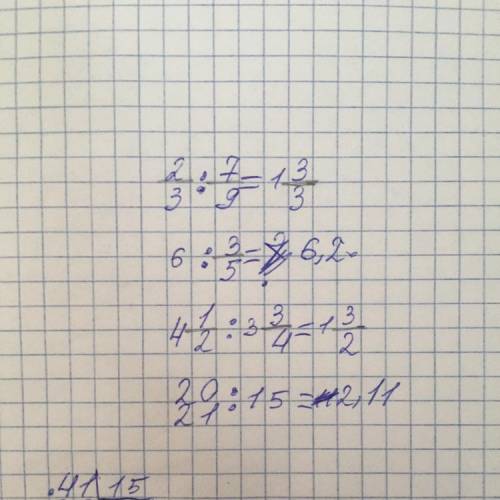 2/3 : 7/9 = 1 3/3
6 : 3/5 = 6,2
4 1/2 : 3 3/4 = 1 3/2
20/21 : 15 = 2,11
41 15